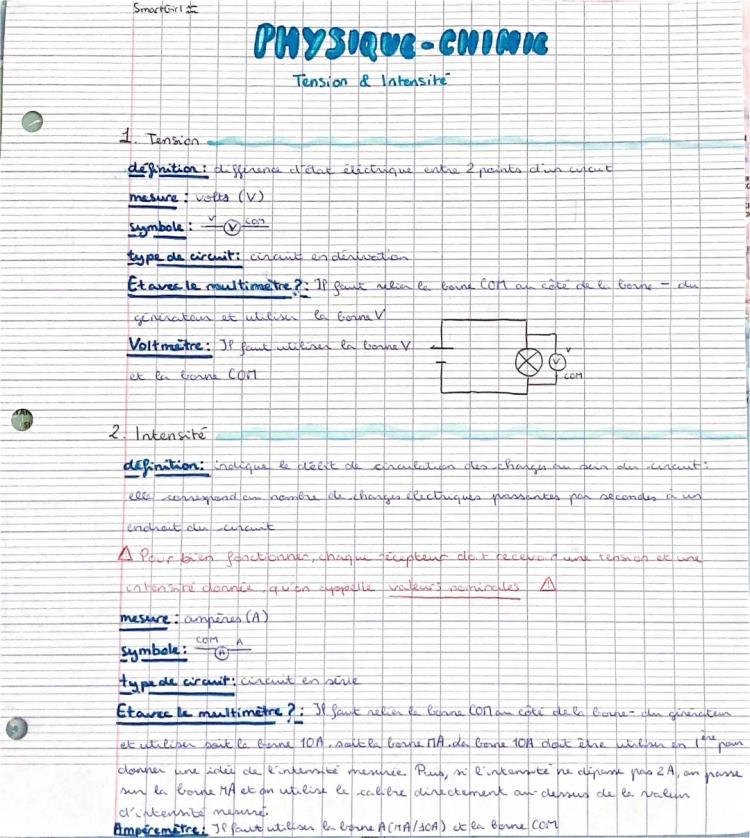 SmartGirl
PHYSIQUE-CHIMIE
Tension & Intensité
1. Tension
définition : différence d'état électrique entre 2 points d'un circuit
mesure : volts (V)
symbole : V V COM
type de circuit : circuit en dérivation
Et avec le multimètre ? : Il faut relier la borne COM au côté de la borne - du
générateur et utiliser la borne V
Voltmètre : Il faut utiliser la borne V
et la borne COM
V
V
COM
2. Intensité
définition : indique le débit de circulation des charges au sein du circuit :
elle correspond au nombre de charges électriques passantes par secondes à un
endroit du circuit
⚠ Pour bien fonctionner, chaque récepteur doit recevoir une tension et une
intensité donnée, qu'on appelle valeurs nominales ⚠
mesure : ampères (A)
symbole : COM A A
type de circuit : circuit en série
Et avec le multimètre ? : Il faut relier la borne COM au côté de la borne - du générateur
et utiliser soit la borne 10A, soit la borne MA. La borne 10A doit être utiliser en 1ère pour
donner une idée de l'intensité mesurée. Puis, si l'intensité ne dépasse pas 2A, on passe
sur la borne MA et on utilise le calibre directement au-dessus de la valeur
d'intensité mesuré.
Ampèremètre : Il faut utiliser la borne A (MA/10A) et la borne COM